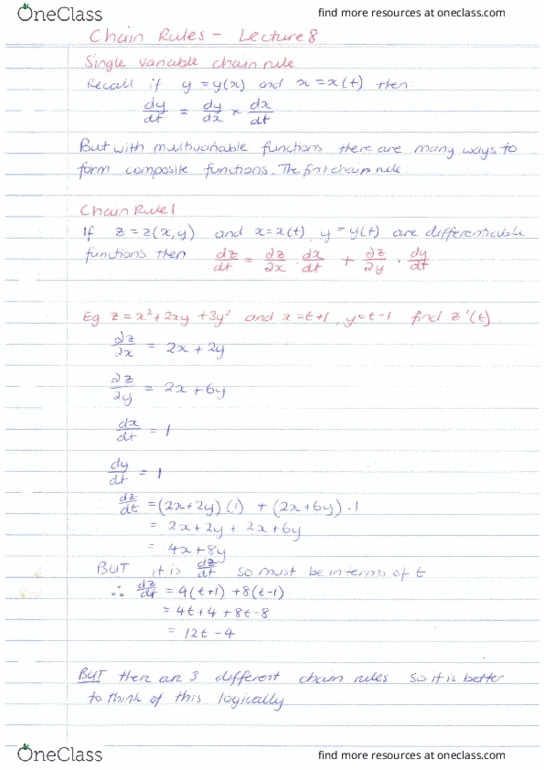 OneClass
find more resources at oneclass.com
Chain Rules - Lecture 8
Single variable chain rule
Recall if y = y(x) and x = x(t) then
dy/dt = dy/dx × dx/dt
But with multivariable functions there are many ways to
form composite functions. The first chain rule
Chain Rule 1
If z = z(x,y) and x = x(t) y = y(t) are differentiable
functions then dz/dt = ∂z/∂x · dx/dt + ∂z/∂y · dy/dt
Eg z = x² + 2xy + 3y² and x = t+1, y = t-1 find z'(t)
∂z/∂x = 2x + 2y
∂z/∂y = 2x + 6y
dx/dt = 1
dy/dt = 1
dz/dt = (2x+2y)(1) + (2x+6y)·1
= 2x + 2y + 2x + 6y
= 4x + 8y
BUT it is dz/dt so must be in terms of t
∴ dz/dt = 4(t+1) + 8(t-1)
= 4t + 4 + 8t - 8
= 12t - 4
BUT there are 3 different chain rules so it is better
to think of this logically
OneClass
find more resources at oneclass.com